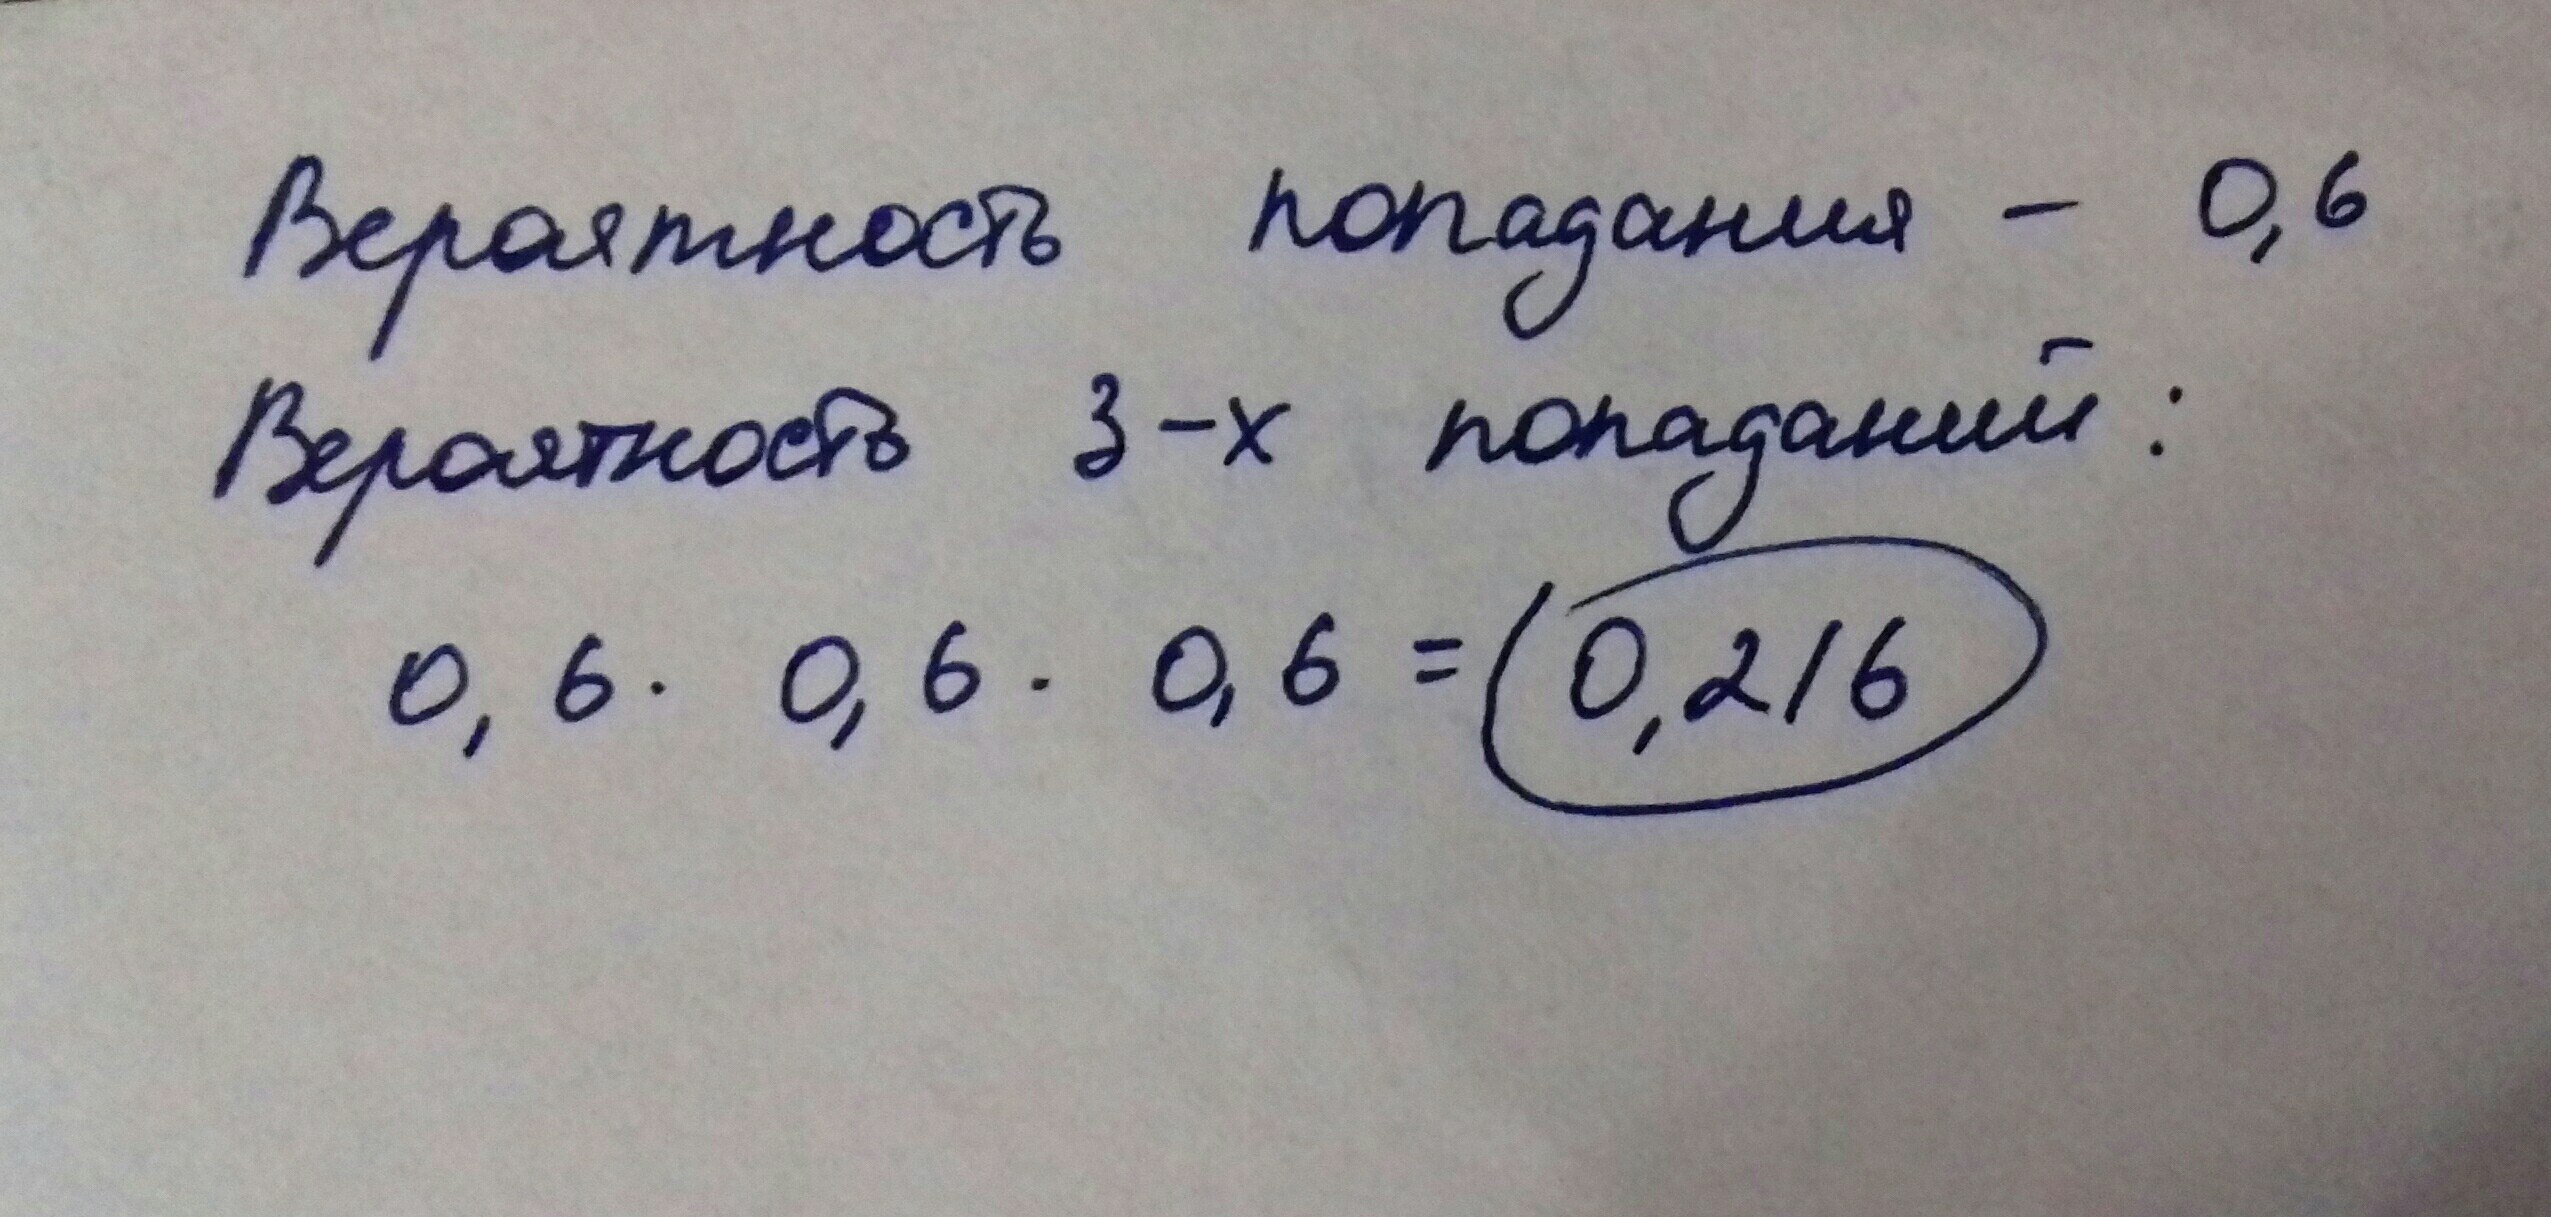 Вероятность попадания - 0,6
Вероятность 3-х попаданий:
0,6 · 0,6 · 0,6 = 0,216